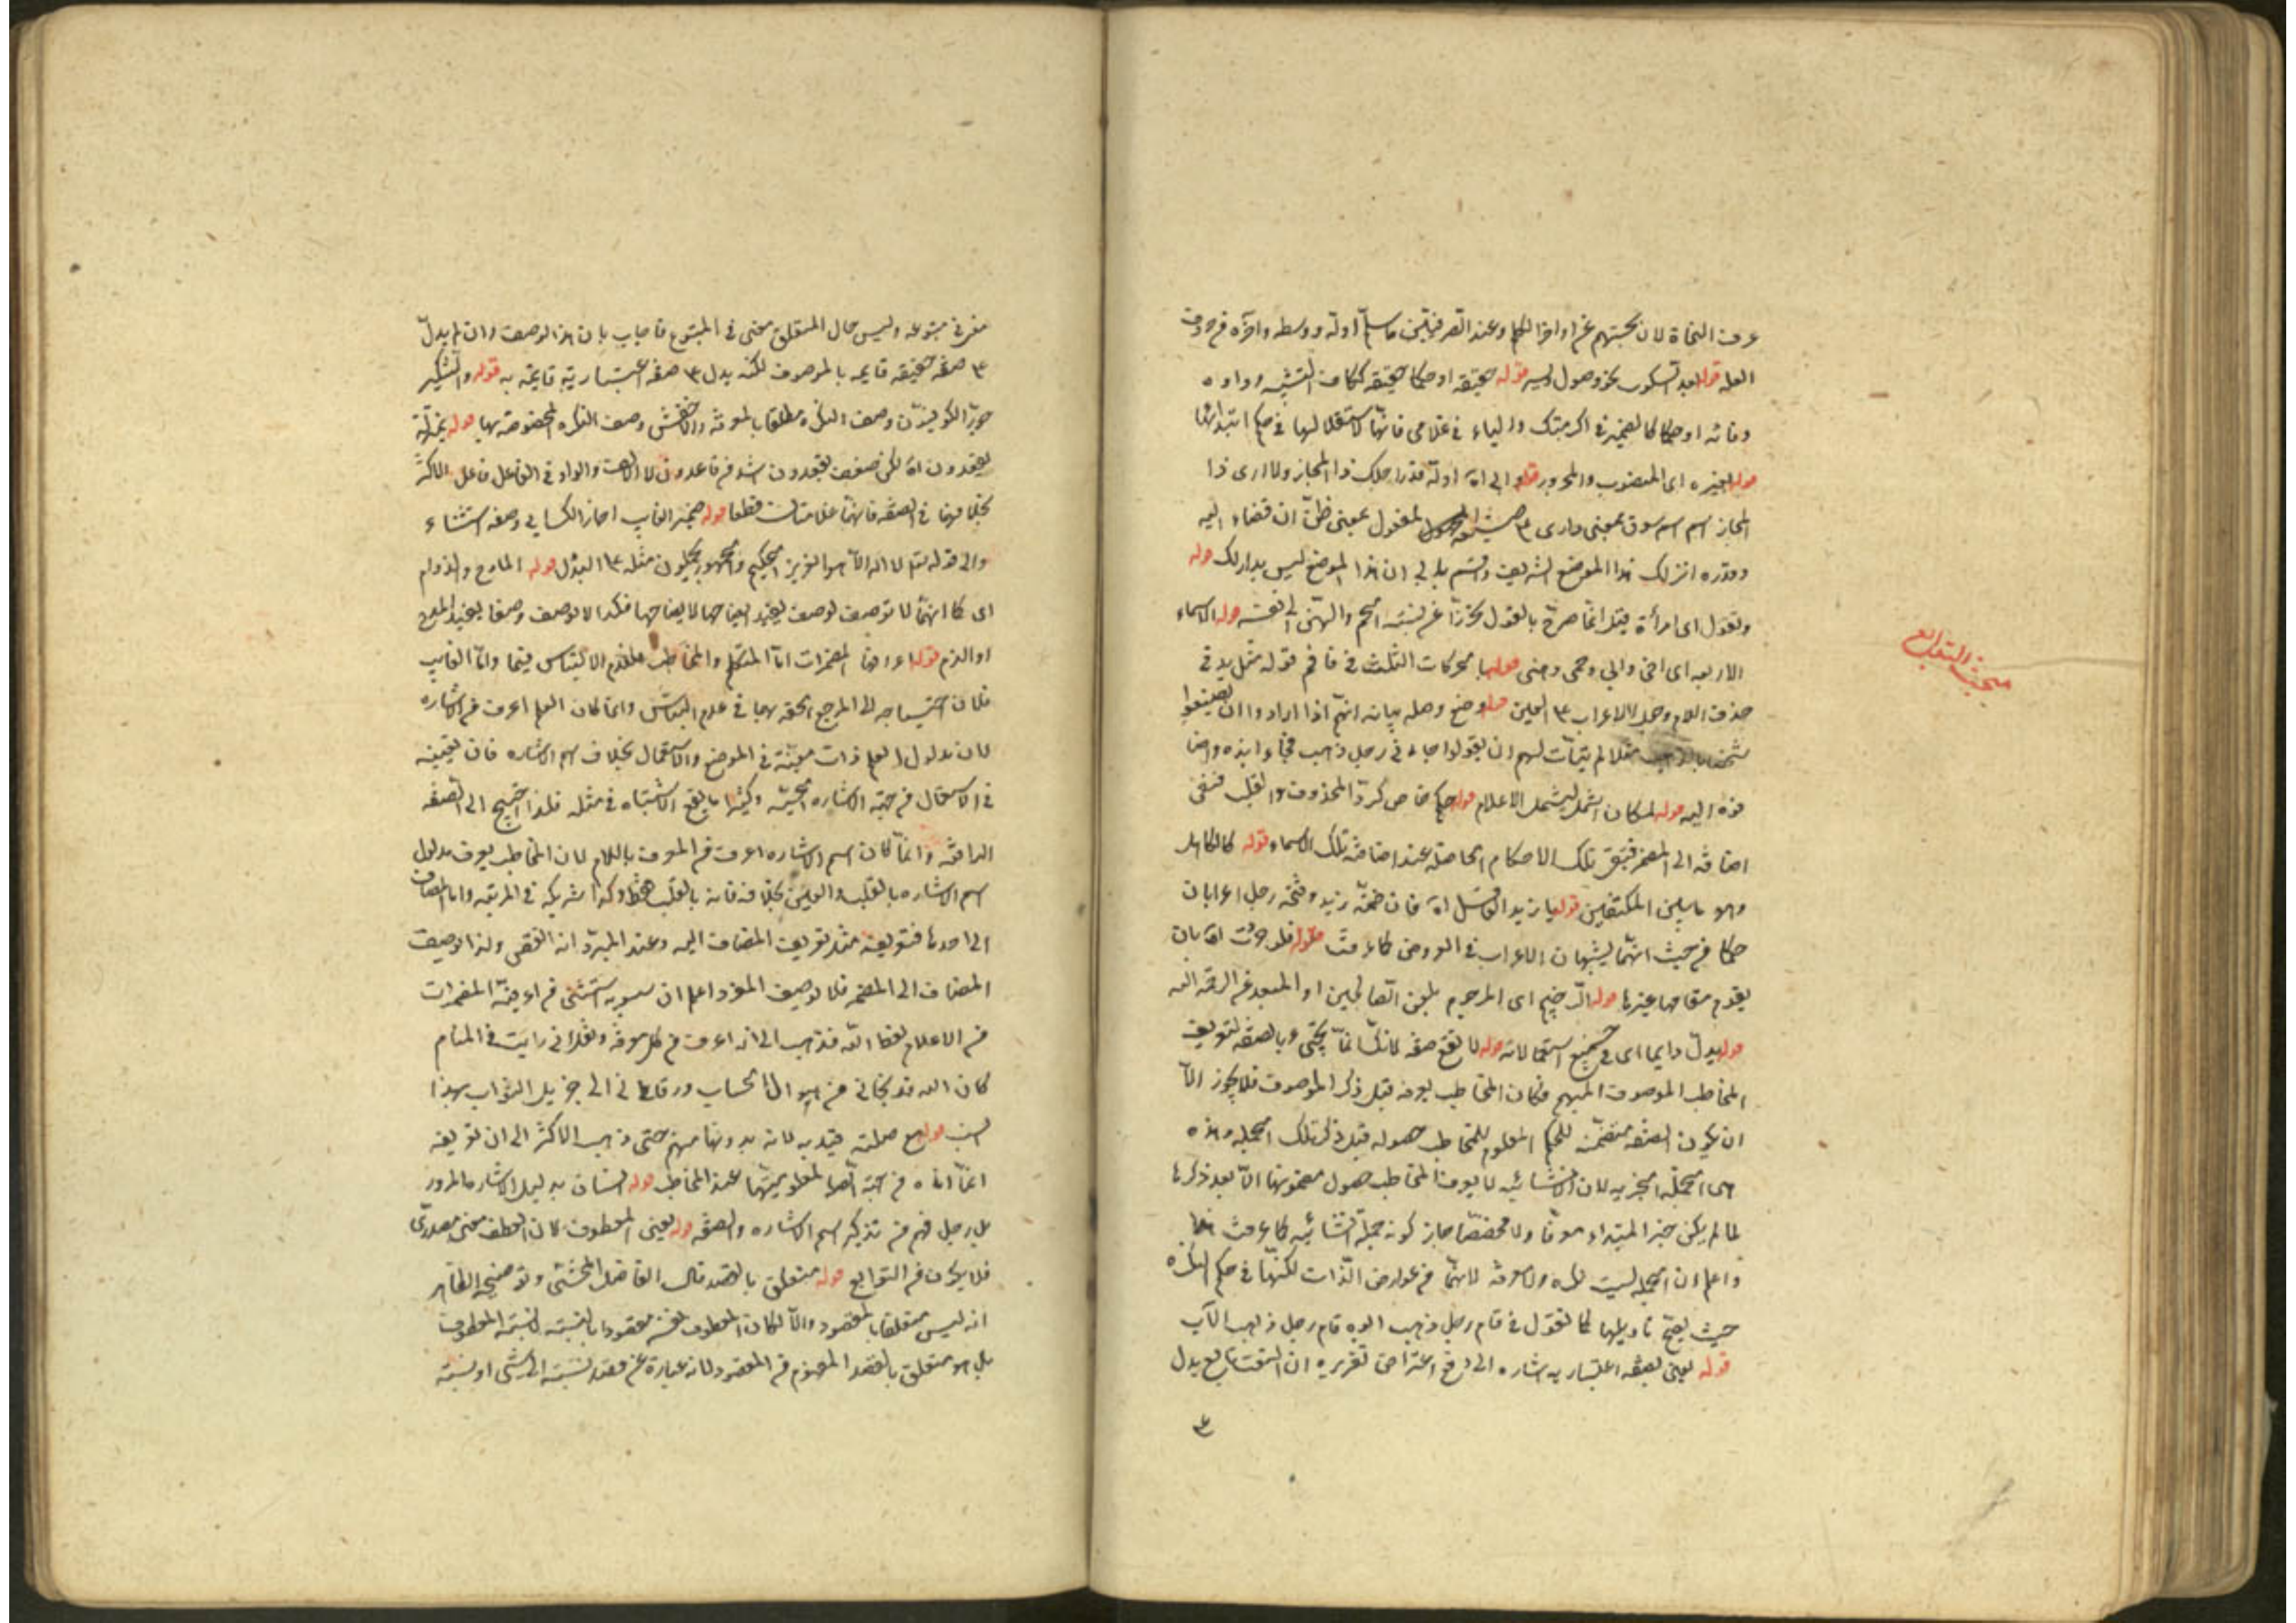 عرف النحاة لان بحثهم عن اواخر الكلم وعند الصرفيين ما سلم اوله ووسطه وآخره من حروف
العلة قوله بعد السكون نحو وصول اليه قوله حقيقة او حكما حقيقة ككاف التثنية وواوه
وتائه او حكما كالضمير في اكرمتك والياء في غلامي فانها لا استقلال لها في حكم ابتدائها
قوله لغيره اى المنصوب والمجرور قوله والى آه اوله قدر احلك ذا المجاز ولا ارى ذا
المجاز اسم سوق بمعنى وارى على صيغة المجهول لمفعول بمعنى ظن ان قضاء اليه
وقدره انزلك هذا الموضع الشريف واقسم بابى ان هذا الموضع ليس بدار لك قوله
وتقول اى امرأة قيل انما صرح بالقول تحرزا عن نسبة الحم والهن الى نفسه قوله الاسماء
الاربعة اى اخى وابى وحمى وهنى قوله بالحركات الثلث فى فا فم قوله مثل يد فى
حذف اللام وجعل الاعراب على العين قوله وضع وصلة بيانه انهم اذا ارادوا ان يصفوا
شخصا بالذهب مثلا لم يتأت لهم ان يقولوا جاءنى رجل ذهب فجاؤا بذو واضا
فوه اليه قوله لمكان اشمل ليشمل الاعلام قوله حكم خاص كرد المحذوف والقلب فنفى
اضافته الى المضمر فبقى تلك الاحكام الحاصلة عند اضافة تلك الاسماء قوله كالكاهل
وهو ما بين المكتفين قوله يا زيد العاقل آه فان ضمة زيد وفتحة رجل اعرابان
حكما من حيث انهما يشبهان الاعراب فى العروض كما عرفت قوله فلو جوزت القابان
يقوم مقامها غيرها قوله الرجيم اى المرجوم بلعن الصالحين او المبعد عن الرحمة الله
قوله يدل دايما اى فى جميع استعمالاته قوله لا تقع صفة لانك انما تجئ بالصفة لتعريف
المخاطب الموصوف المبهم فكان المخاطب يعرفه قبل ذكر الموصوف فلا يجوز الا
ان يكون الصفة متضمنة للحكم المعلوم للمخاطب حصوله قبل ذكر تلك الجملة وهذه
هى الجملة الخبرية لان الانشائية لا يعرف المخاطب حصول مضمونها الا بعد ذكرها
لما لم يكن خبر المبتداء معرفا ولا مخصصا جاز كونه جملة انشائية كما عرفت هذا
واعلم ان الجملة ليست نكرة ولا معرفة لانهما من عوارض الذات لكنها فى حكم النكرة
حيث يصح تاويلها كما تقول فى قام رجل ذهب ابوه قام رجل ذاهب الاب
قوله يعنى بصفة اعتبارية اشارة الى دفع اعتراض تقريره ان النعت تابع يدل
على
مبحث التوابع
معنى فى متبوعه وليس حال المتعلق معنى فى المتبوع فاجاب بان هذا الوصف وان لم يدل
على صفة حقيقة قايمة بالموصوف لكنه يدل على صفة اعتبارية قايمة به قوله والتنكير
جوز الكوفيون وصف النكرة مطلقا بالمعرفة والاخفش وصف النكرة المخصوصة بها قوله بمنزلة
يقعدون آه لكن ضعف يقعدون اشد من قاعدون لان الالف والواو فى الفاعل فاعل الاكثر
بخلافهما فى الصفة فانهما علامتان قطعا قوله ضمير الغايب اجاز الكسائى وصفه استثناء
والى قوله تع لا اله الا هو العزيز الحكيم والجمهور يحملون مثله على البدل قوله المادح والذام
اى كما انهما لا توصف لوصف يفيد ايضاحها لا يضاحها فكذا لا توصف وصفا يفيد المدح
او الذم قوله اعرافا المضمرات اما المتكلم والمخاطب فلعدم الالتباس فيهما واما الغايب
فلان احتياجه الى المرجع الحقه بهما فى عدم التباس وانما كان العلم اعرف من الاشارة
لان مدلول العلم ذات معينة فى الموضع والاستعمال بخلاف اسم الاشارة فان تعيينه
فى الاستعمال من جهة الاشارة الحسية وكثيرا ما يقع الاشتباه فى مثله فلذا احتيج الى الصفة
الرافعة وانما كان اسم الاشارة اعرف من المعرف باللام لان المخاطب يعرف مدلول
اسم الاشارة بالقلب والعين بخلافه فانه بالقلب فقط وكذا شريكه فى المرتبة واما المضاف
الى احدها فتعريفه مثل تعريف المضاف اليه وعند المبرد انه انقص ولذا لوصف
المضاف الى المضمر فلا توصف المعرف واعلم ان سيبويه استثنى من اعرفية المضمرات
من الاعلام لفظ الله فذهب الى انه اعرف من كل معرفة ونقل انى رايت فى المنام
كان الله قد نجانى من اهوال الحساب ورقانى الى جزيل الثواب بهذا
السبب قوله مع صلته قيد به لانه بدونها مبهم حتى ذهب الاكثر الى ان تعريفه
انما اتاه من جهة الصلة لمعلوميتها عند المخاطب قوله البيان بدليل الاشارة المرور
بل رجل فهم من تذكير اسم الاشارة والصفة قوله يعنى المعطوف كان العطف معنى مصدرى
فلا يكون من التوابع قوله متعلق بالقصد قال الفاضل المحشى وتوضيحه الظاهر
انه ليس متعلقا بالمقصود والا لكان المعطوف نفسه مقصودا بالنسبة لا نسبة المعطوف
بل هو متعلق بالقصد المفهوم من المقصود لانه عبارة عن قصد نسبته الى شئ او نسبة